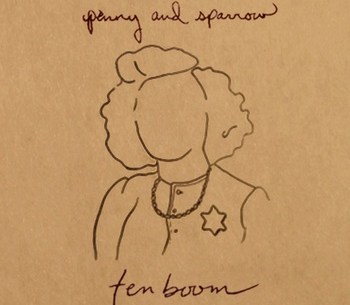 penny and sparrow
tenboom